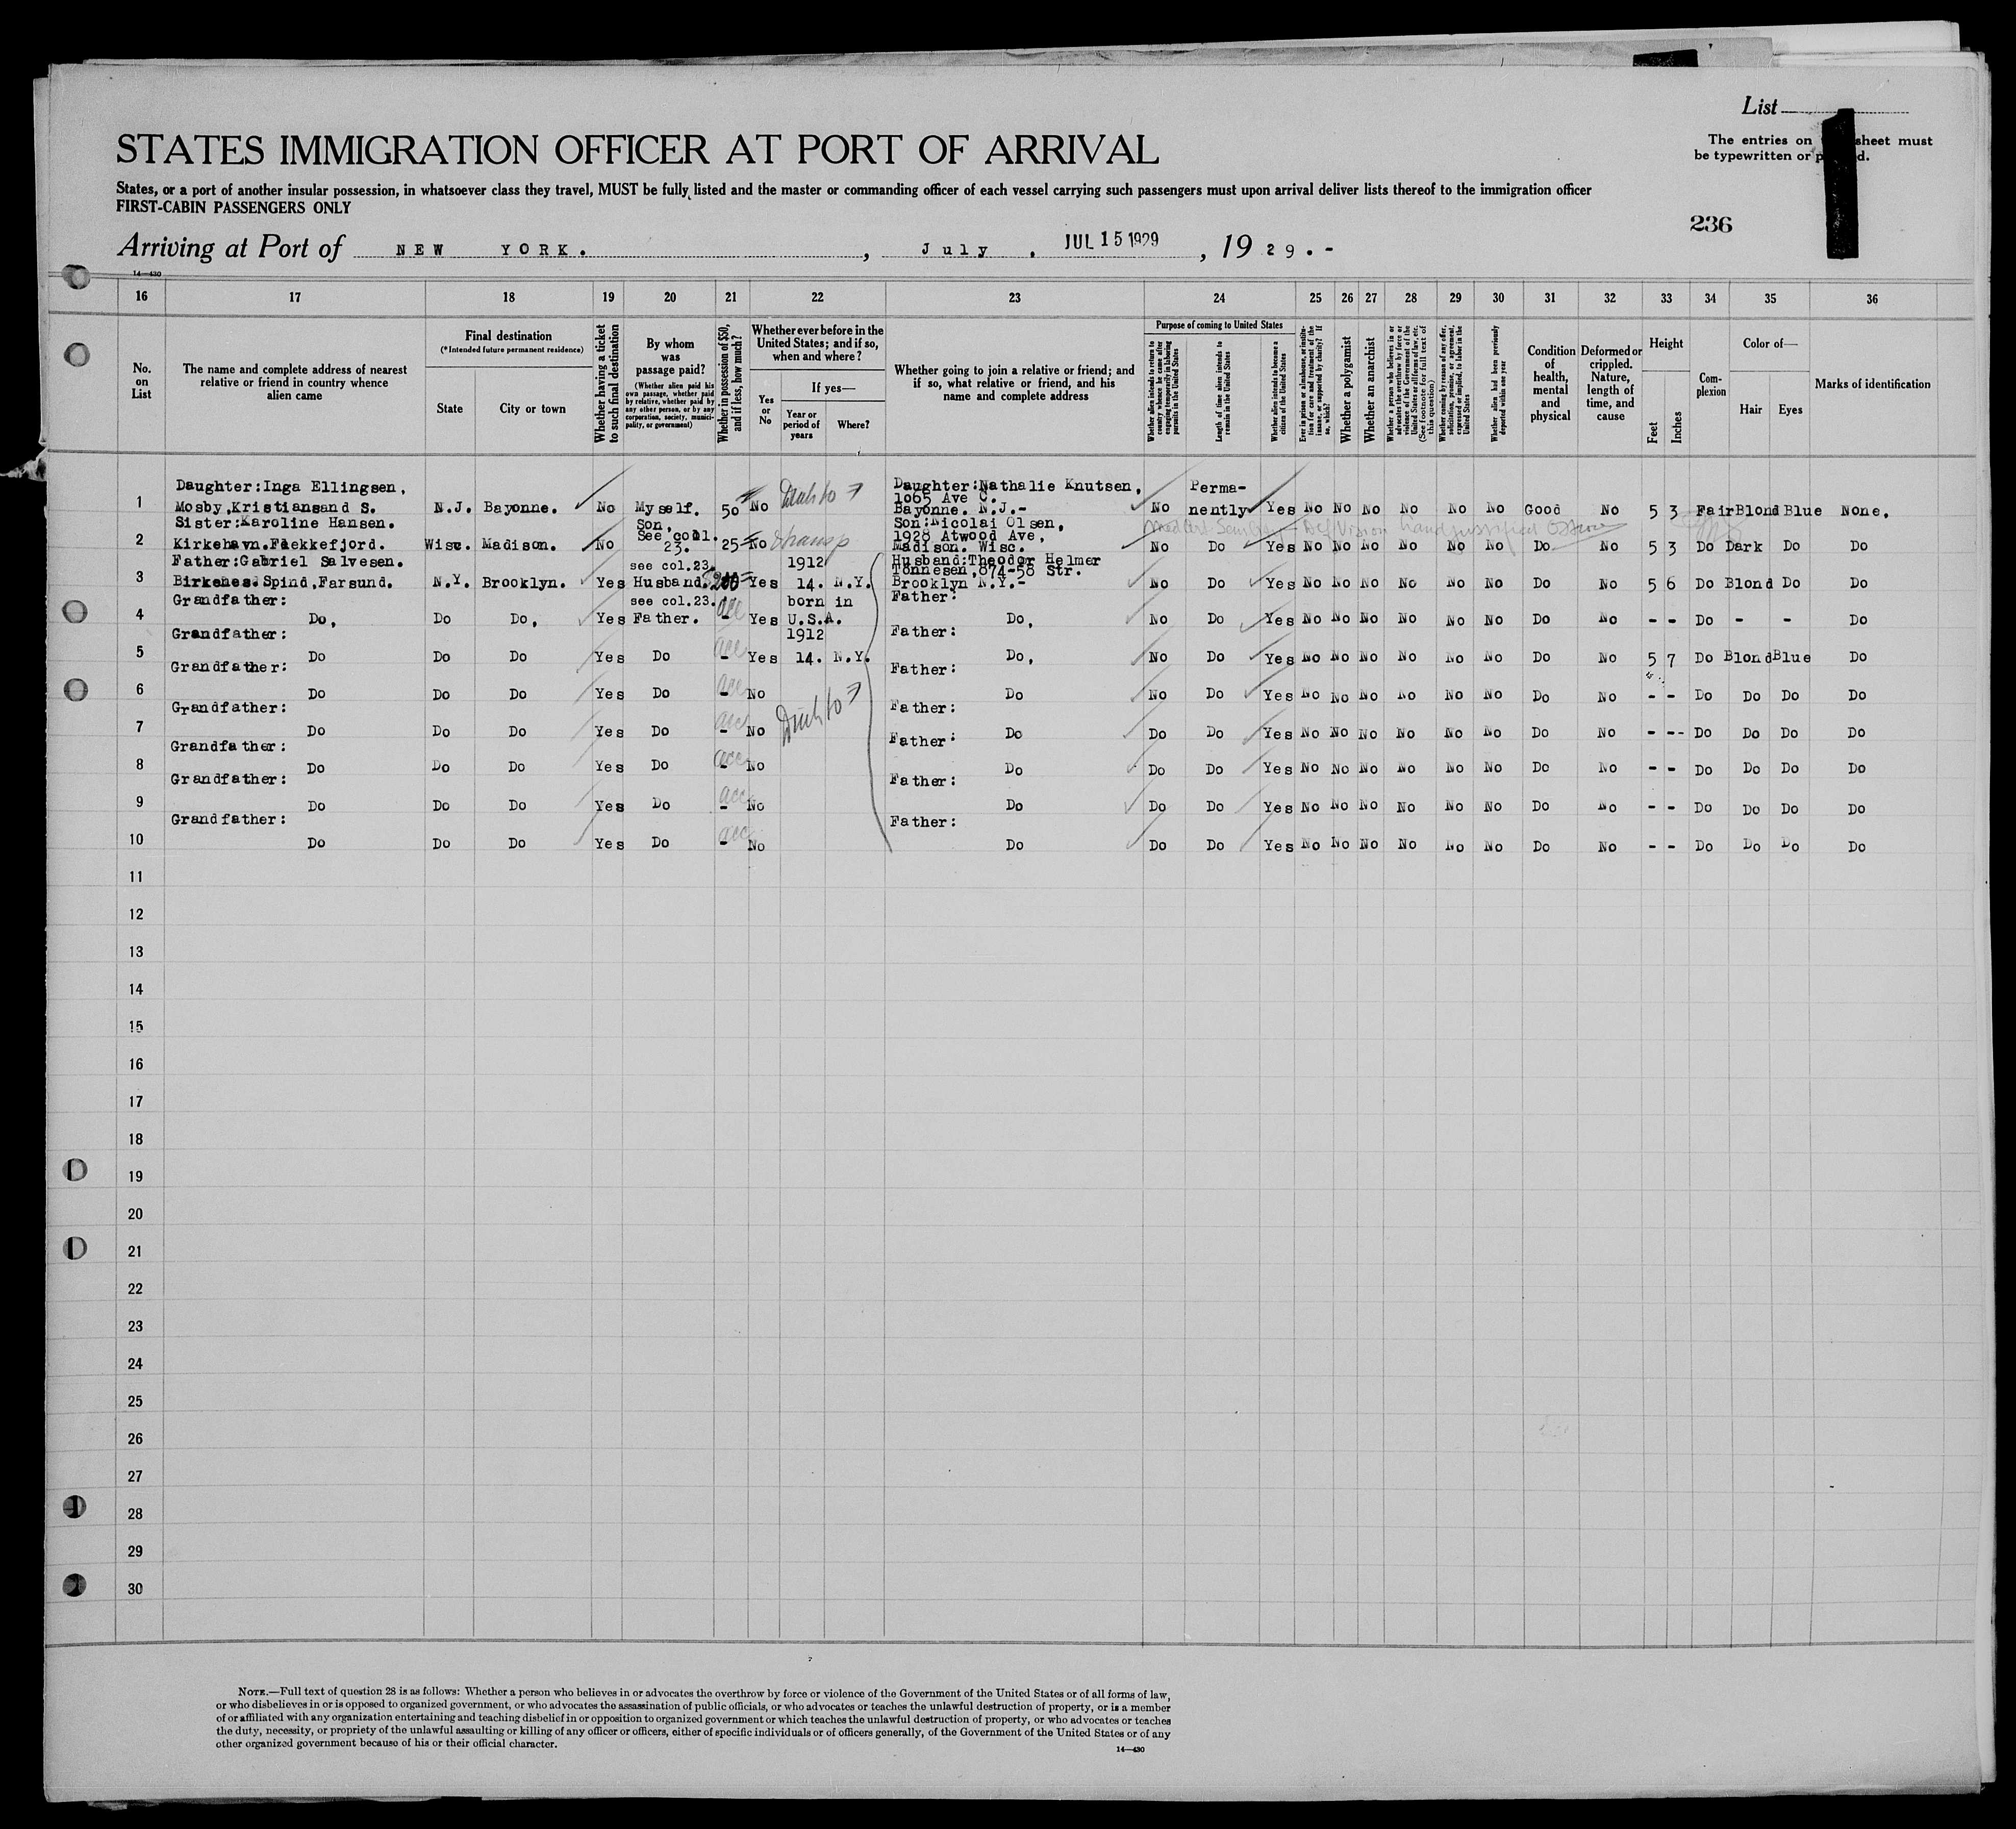 List
The entries on sheet must
be typewritten or
STATES IMMIGRATION OFFICER AT PORT OF ARRIVAL
States, or a port of another insular possession, in whatsoever class they travel, MUST be fully listed and the master or commanding officer of each vessel carrying such passengers must upon arrival deliver lists thereof to the immigration officer
FIRST-CABIN PASSENGERS ONLY
236
Arriving at Port of NEW YORK. , July , JUL 15 1929 , 19 29.-
14—430
16 17 18 19 20 21 22 23 24 25 26 27 28 29 30 31 32 33 34 35 36
No. on List
The name and complete address of nearest relative or friend in country whence alien came
Final destination
(*Intended future permanent residence)
State City or town
Whether having a ticket to such final destination
By whom was passage paid?
(Whether alien paid his own passage, whether paid by relative, whether paid by any other person, or by any corporation, society, municipality, or government)
Whether in possession of $50, and if less, how much?
Whether ever before in the United States; and if so, when and where?
Yes or No
If yes—
Year or period of years
Where?
Whether going to join a relative or friend; and if so, what relative or friend, and his name and complete address
Purpose of coming to United States
Whether alien intends to return to country whence he came after engaging temporarily in laboring pursuits in the United States
Length of time alien intends to remain in the United States
Whether alien intends to become a citizen of the United States
Ever in prison or almshouse, or institution for care and treatment of the insane, or supported by charity? If so, which?
Whether a polygamist
Whether an anarchist
Whether a person who believes in or advocates the overthrow by force or violence of the Government of the United States or all forms of law, etc. (See footnote for full text of this question)
Whether coming by reason of any offer, solicitation, promise, or agreement, expressed or implied, to labor in the United States
Whether alien had been previously deported within one year
Condition of health, mental and physical
Deformed or crippled. Nature, length of time, and cause
Height
Feet Inches
Complexion
Color of—
Hair Eyes
Marks of identification
Daughter:Inga Ellingsen, Daughter:Nathalie Knutsen, Perma-
1065 Ave C.
1 Mosby,Kristiansand S. N.J. Bayonne. No Myself. 50 No Bayonne. N.J.- No nently Yes No No No No No No Good No 5 3 Fair Blond Blue None.
Sister:Karoline Hansen. Son, See coll. Son:Nicolai Olsen,
1928 Atwood Ave,
2 Kirkehavn.Flekkefjord. Wisc. Madison. No 23. 25 No Madison. Wisc. No Do Yes No No No No No No Do No 5 3 Do Dark Do Do
Father:Gabriel Salvesen. see col.23. 1912 Husband:Theodor Helmer
Tonnesen,874-58 Str.
3 Birkenes.Spind,Farsund. N.Y. Brooklyn. Yes Husband. 200 Yes 14. N.Y. Brooklyn N.Y.- No Do Yes No No No No No No Do No 5 6 Do Blond Do Do
Grandfather: see col.23. born in Father:
4 Do, Do Do, Yes Father. - Yes U.S.A. Do, No Do Yes No No No No No No Do No - - Do - - Do
Grandfather: 1912 Father:
5 Do Do Do Yes Do - Yes 14. N.Y. Do, No Do Yes No No No No No No Do No 5 7 Do Blond Blue Do
Grandfather: Father:
6 Do Do Do Yes Do - No Do No Do Yes No No No No No No Do No - - Do Do Do Do
Grandfather: Father:
7 Do Do Do Yes Do - No Do Do Do Yes No No No No No No Do No - -- Do Do Do Do
Grandfather: Father:
8 Do Do Do Yes Do - No Do Do Do Yes No No No No No No Do No - - Do Do Do Do
Grandfather: Father:
9 Do Do Do Yes Do - No Do Do Do Yes No No No No No No Do No - - Do Do Do Do
Grandfather: Father:
10 Do Do Do Yes Do - No Do Do Do Yes No No No No No No Do No - - Do Do Do Do
11
12
13
14
15
16
17
18
19
20
21
22
23
24
25
26
27
28
29
30
NOTE.—Full text of question 28 is as follows: Whether a person who believes in or advocates the overthrow by force or violence of the Government of the United States or of all forms of law,
or who disbelieves in or is opposed to organized government, or who advocates the assassination of public officials, or who advocates or teaches the unlawful destruction of property, or is a member
of or affiliated with any organization entertaining and teaching disbelief in or opposition to organized government or which teaches the unlawful destruction of property, or who advocates or teaches
the duty, necessity, or propriety of the unlawful assaulting or killing of any officer or officers, either of specific individuals or of officers generally, of the Government of the United States or of any
other organized government because of his or their official character.
14—430